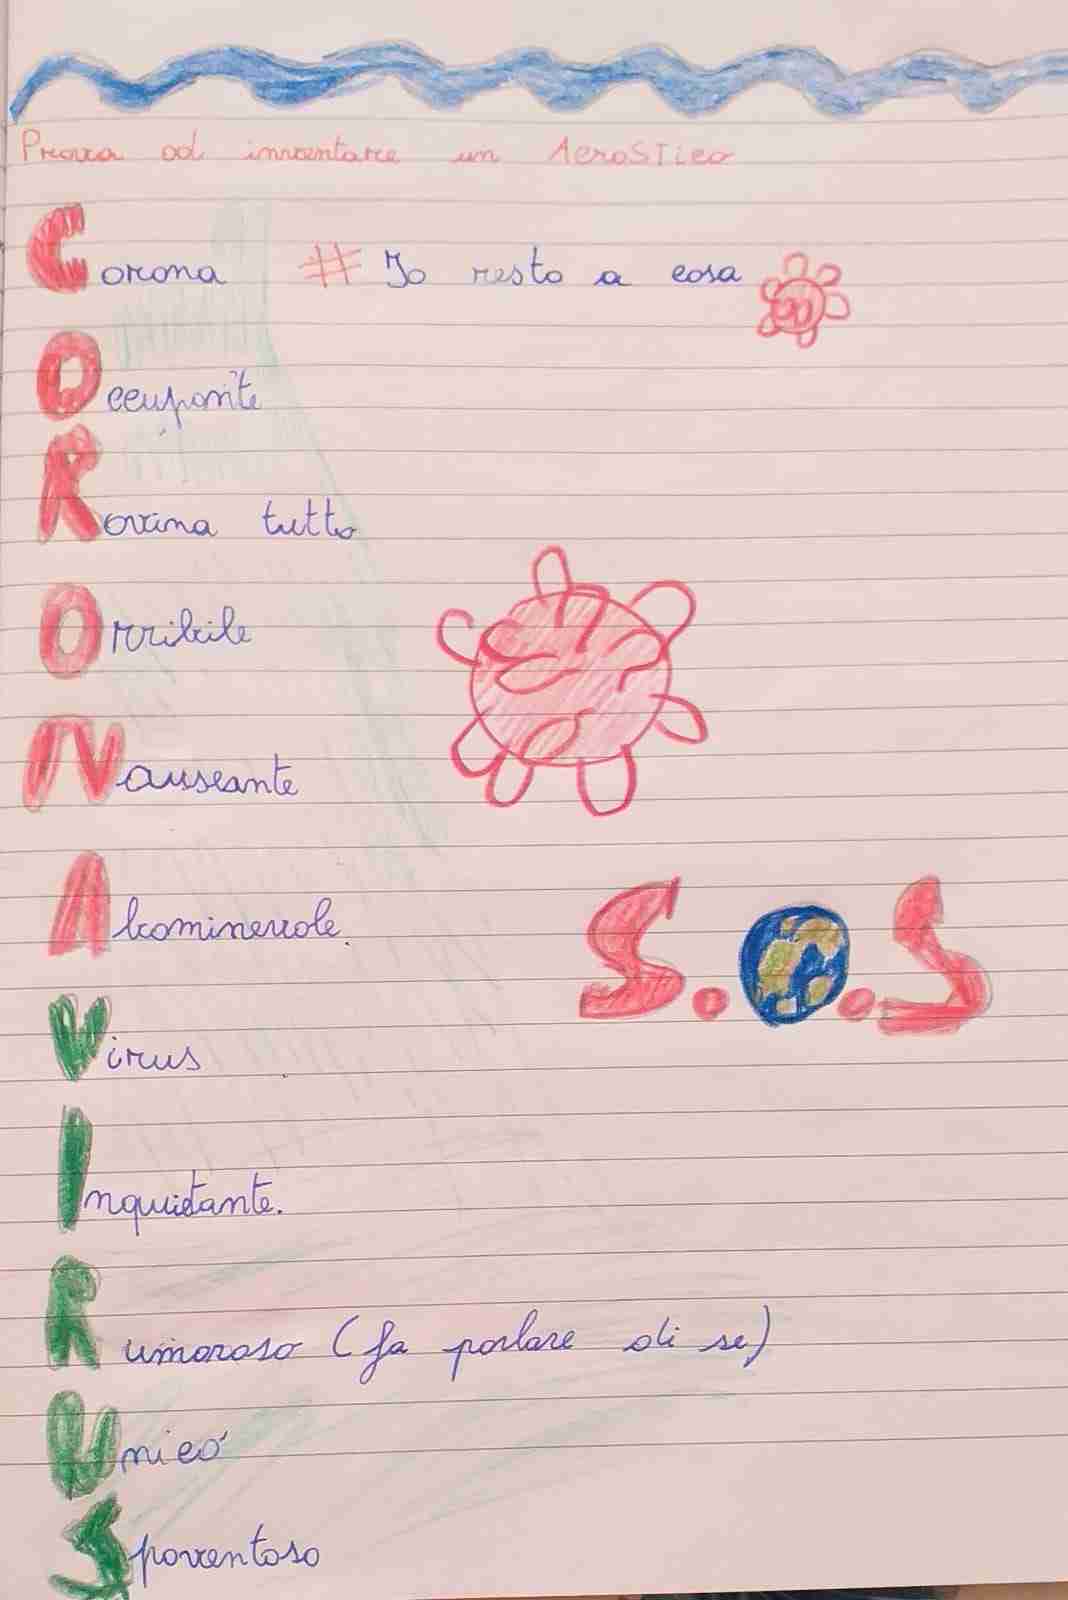 Prova ad inventare un Acrostico
Corona # Io resto a casa
Occupante
Rovina tutto
Orribile
Nauseante
Abominevole.
Virus
Inquietante.
Rumoroso (fa parlare di se)
Unico
Spaventoso
S.O.S